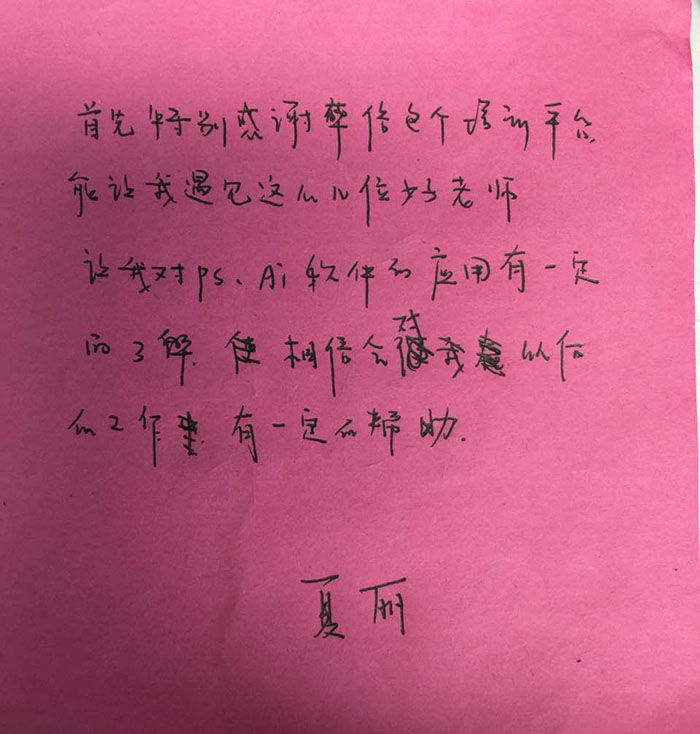 首先特别感谢華信这个培训平台
能让我遇见这么几位好老师
让我对ps、Ai软件的应用有一定
的了解. 相信会对我以后
的工作有一定的帮助.
夏丽